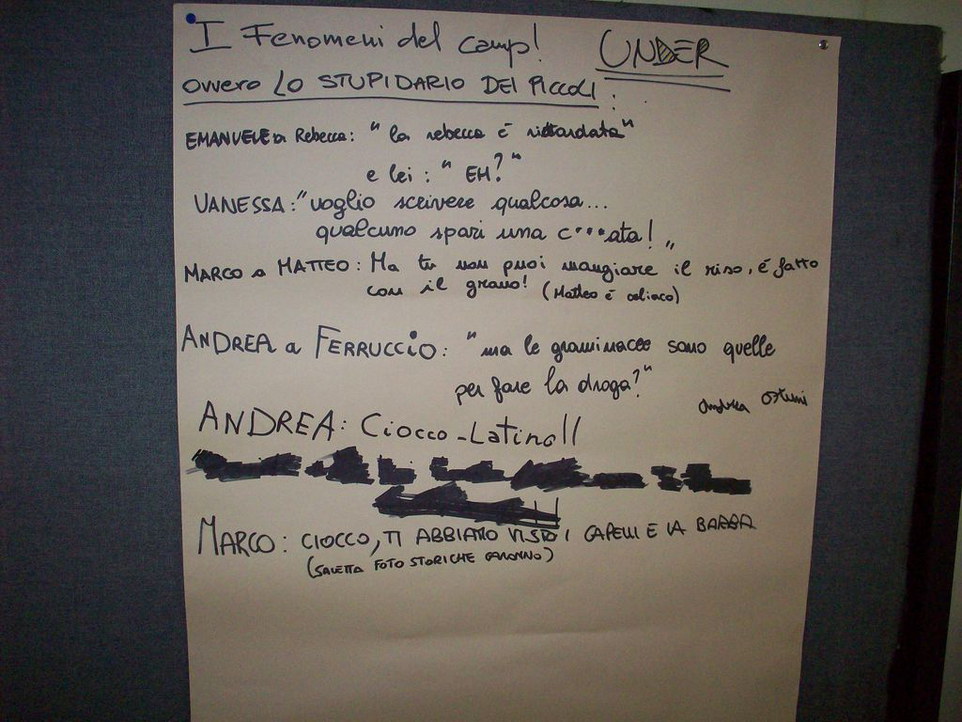 I Fenomeni del camp! UNDER
ovvero LO STUPIDARIO DEI PICCOLI:
EMANUELE a Rebecca: "la rebecca è rittardata"
e lei: "EH?"
VANESSA: "voglio scrivere qualcosa...
qualcuno spari una c•••ata!"
MARCO a MATTEO: Ma tu non puoi mangiare il riso, è fatto
con il grano! (Matteo è celiaco)
ANDREA a FERRUCCIO: "ma le graminacee sono quelle
per fare la droga?"
Andrea Ostuni
ANDREA: Ciocco-Latino!!
MARCO: CIOCCO, TI ABBIAMO VISTO I CAPELLI E LA BARBA
(SALETTA FOTO STORICHE)